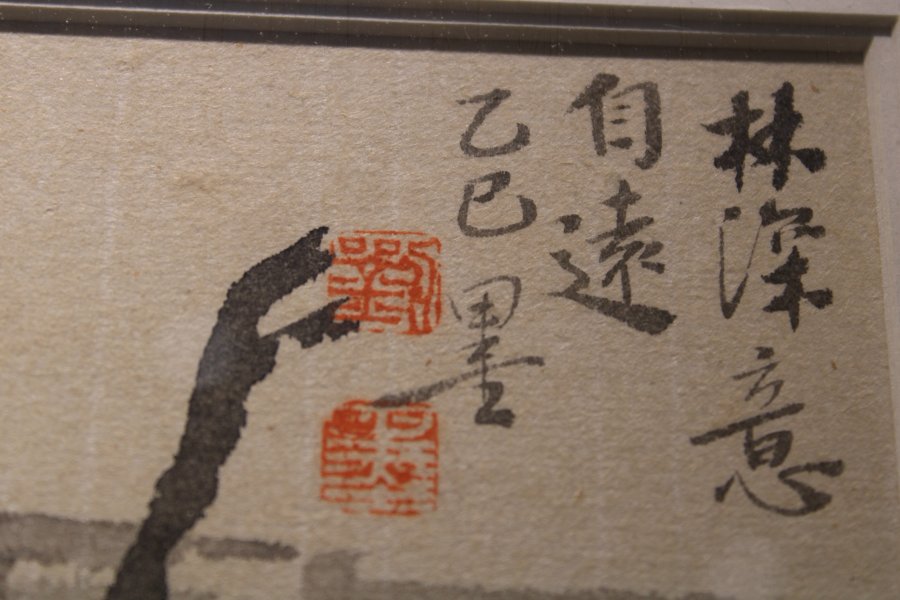 林深意
自遠
乙巳墨